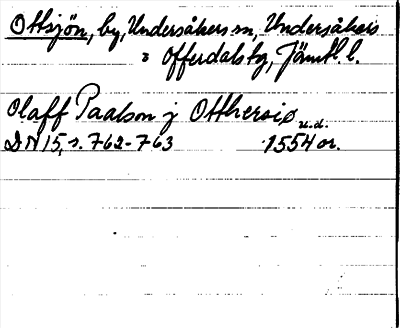 Ottsjön, by, Undersåkers sn, Undersåkers
o Offerdals tg, Jämtl. l.
Olaff Paalson j Otthersiø u.d.
DN 15, s. 762-763 1554 or.